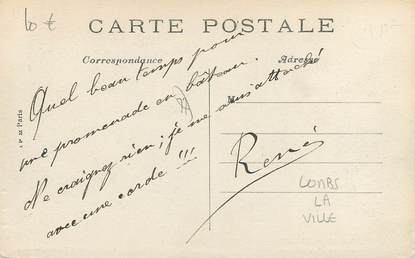 10 €
CARTE POSTALE
Correspondance
Adresse
Quel beau temps pour
une promenade en bâteau.
Ne craignez rien; je me suis attaché
avec une corde !!!
René
COMBS
LA
VILLE
Paris